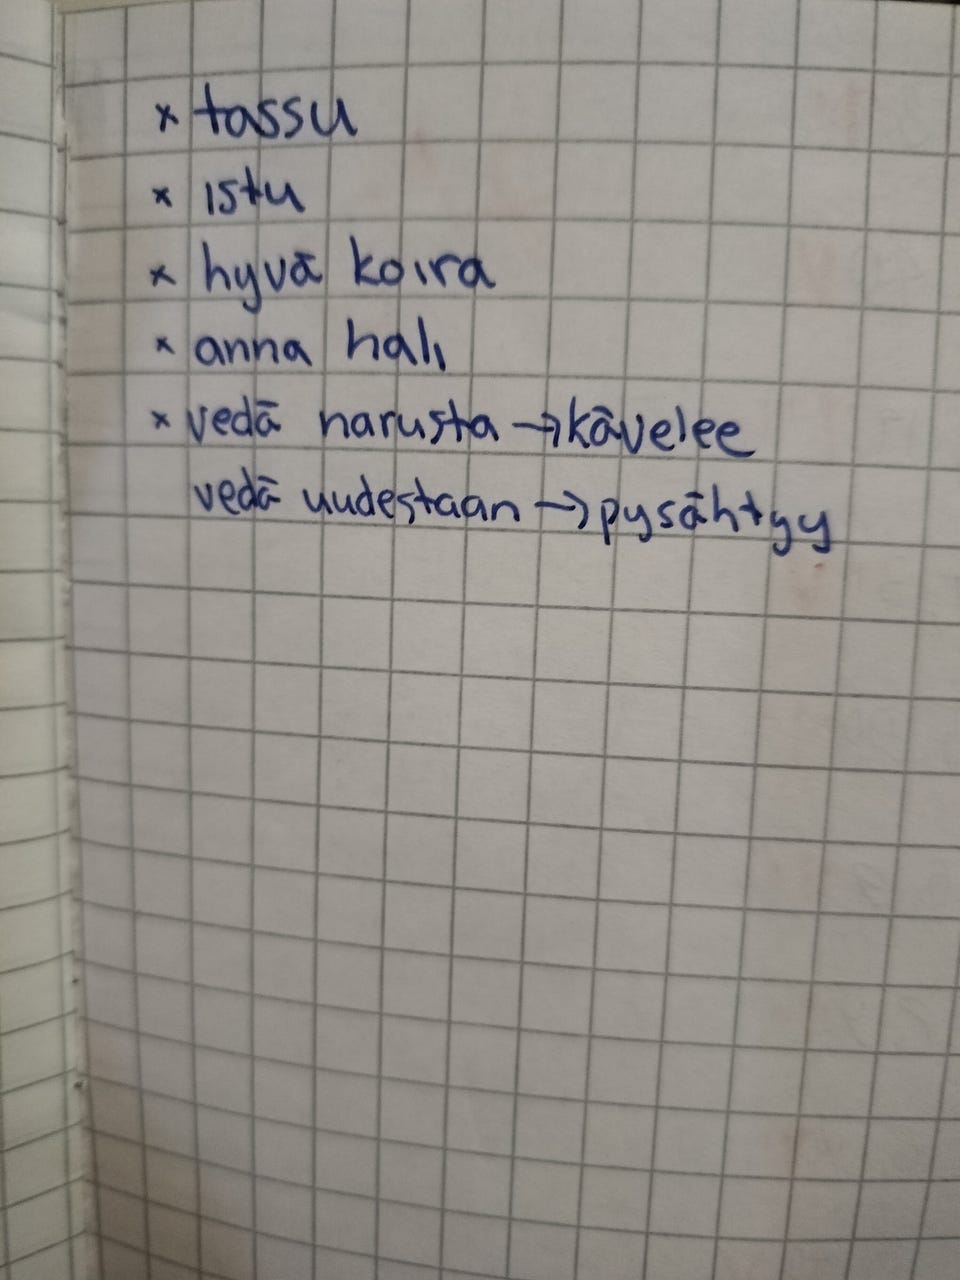 × tassu
× istu
× hyvä koira
× anna hali
× vedä narusta → kävelee
vedä uudestaan → pysähtyy